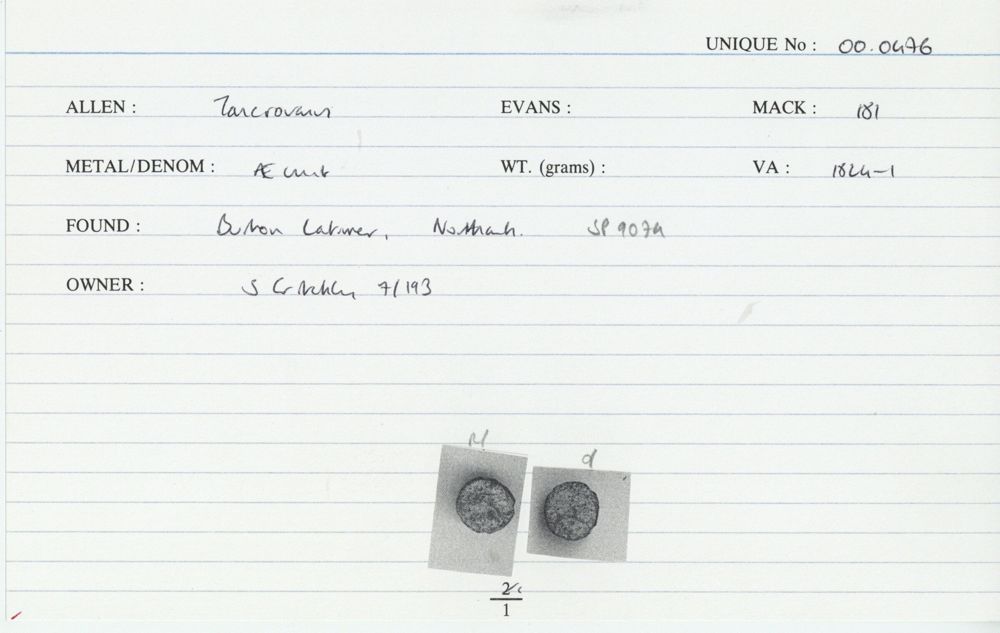 UNIQUE No : 00.0476
ALLEN : Tasciovanus EVANS : MACK : 181
METAL/DENOM : Æ unit WT. (grams) : VA : 1824-1
FOUND : Burton Latimer, Northants. SP 9074
OWNER : S Critchley 7/193
2
1